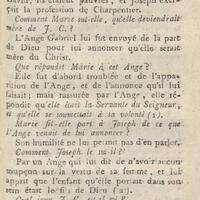 David, ils étaient pauvres, et Joseph exer-
çait la profession de Charpentier.
Comment Marie sut-elle, qu'elle deviendrait
mère de J. C. ?
L'Ange Gabriel lui fut envoyé de la part
de Dieu pour lui annoncer qu'elle serait
mère du Christ.
Que répondit Marie à cet Ange ?
Elle fut d'abord troublée et de l'appa-
rition de l'Ange, et de l'annonce qu'il lui
faisait ; mais rassurée par l'Ange, elle ré-
pondit qu'elle était la Servante du Seigneur,
et qu'elle se soumettait à sa volonté (1).
Marie fit-elle part à Joseph de ce que
l'Ange venait de lui annoncer ?
Son humilité ne lui permit pas d'en parler.
Comment Joseph le sut-il ?
Par un Ange qui lui dit de n'avoir aucun
soupçon sur la vertu de sa femme, et lui
apprit que l'enfant qu'elle portait dans son
sein était le fils de Dieu (2).